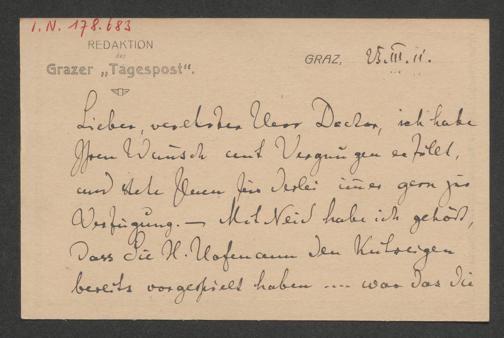 I.N. 178.683
REDAKTION
der
Grazer „Tagespost“.
GRAZ, 25.III.11.
Lieber, verehrter Herr Doctor, ich habe
Ihren Wunsch mit Vergnügen erfüllt,
und stehe Ihnen für derlei immer gern zur
Verfügung. — Mit Neid habe ich gehört,
dass Sie H. Hofmann den Kuhreigen
bereits vorgespielt haben .... war das die